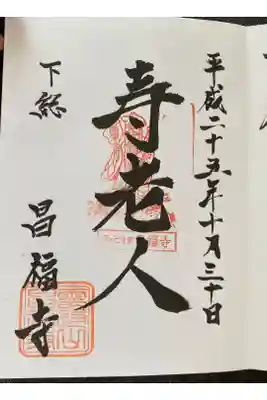 平成二十五年十月三十日
寿老人
下総
昌福寺